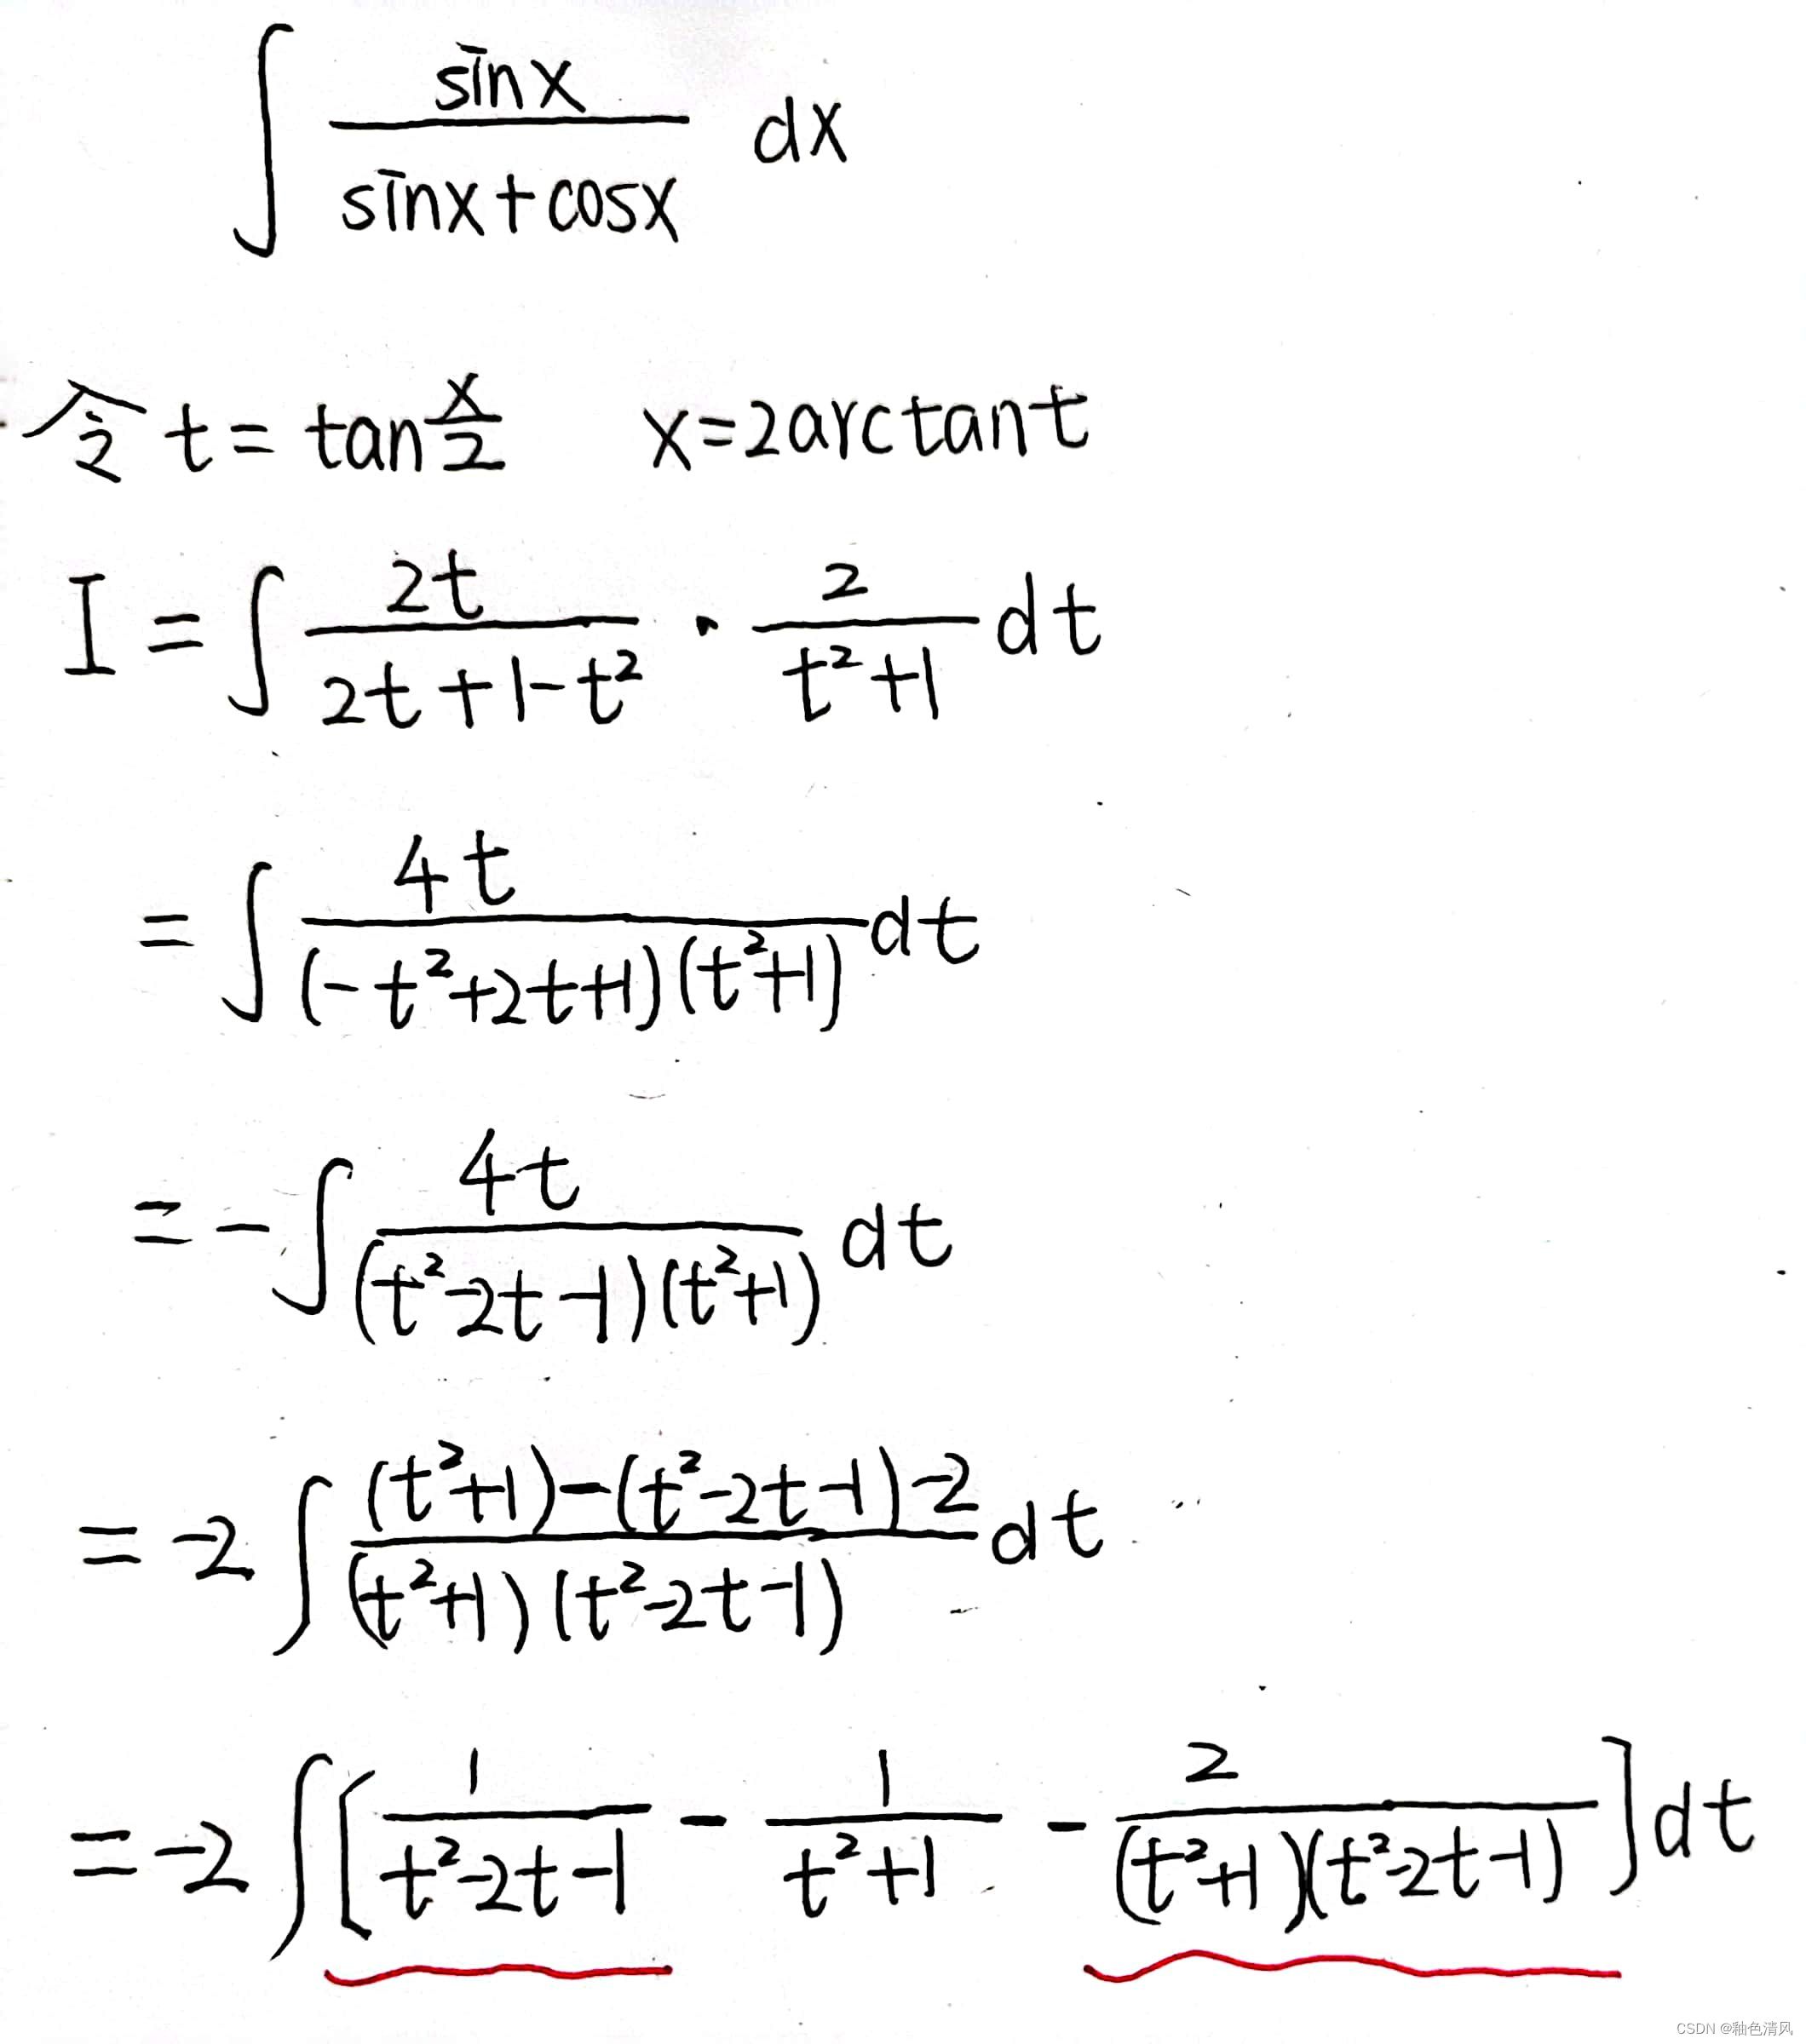 ∫ sinx/(sinx+cosx) dx
令 t = tan x/2 x=2arctant
I = ∫ 2t/(2t+1-t²) · 2/(t²+1) dt
= ∫ 4t/((-t²+2t+1)(t²+1)) dt
= -∫ 4t/((t²-2t-1)(t²+1)) dt
= -2∫ ((t²+1)-(t²-2t-1)-2)/((t²+1)(t²-2t-1)) dt
= -2∫[1/(t²-2t-1) - 1/(t²+1) - 2/((t²+1)(t²-2t-1))]dt
CSDN @釉色清风